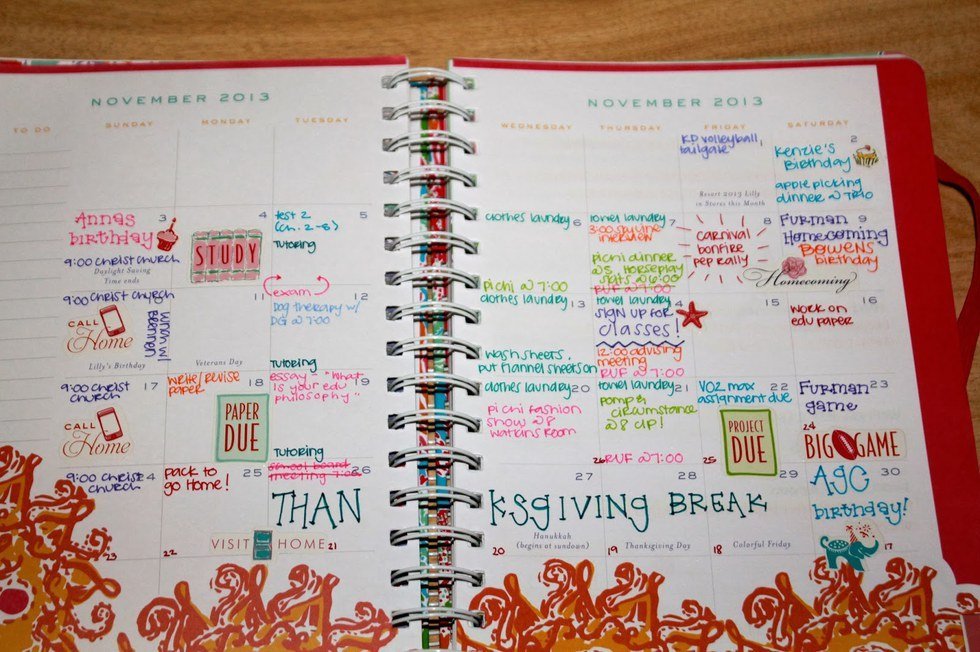 NOVEMBER 2013
TO DO
SUNDAY
MONDAY
TUESDAY
3
Annas
birthday
9:00 Christ Church
Daylight Saving
Time ends
4
STUDY
5
test 2
(ch. 2-8)
Tutoring
exam
9:00 Christ Church
CALL
Home
lunch w/
Brennen
Lilly's Birthday
11
Veterans Day
12
Dog therapy w/
DG @ 7:00
Tutoring
17
9:00 Christ
Church
CALL
Home
18
write/revise
paper
PAPER
DUE
19
essay "What
is your edu
philosophy"
Tutoring
9:00 Christ
Church
4
23
25
pack to
go Home!
22
VISIT HOME
26
school board
meeting 7:00
THAN
21
NOVEMBER 2013
WEDNESDAY
THURSDAY
FRIDAY
SATURDAY
KD volleyball,
tailgate
Resort 2013 Lilly
in Stores this Month
2
Kenzie's
Birthday
apple picking
dinner @ 7
6
clothes laundry
Pi chi @ 7:00
7
towel laundry
3:00
interview
pi chi dinner
@5 Horseplay
@ 6:00
RUF @ 7:00
8
carnival
bonfire
pep rally
9
Furman
Homecoming
BOWENS
birthday
Homecoming
13
clothes laundry
wash sheets,
put flannel sheets on
4
towel laundry
sign up for
classes!
12:00 advising
meeting
RUF @ 7:00
15
16
work on
edu paper
20
clothes laundry
pi chi fashion
show @ 8
Watkins Room
21
towel laundry
pomp &
circumstance
@ 8 CLP!
RUF @ 7:00
26
22
VO2 max
assignment due
PROJECT
DUE
25
23
Furman
game
24
BIG GAME
27
28
29
KSGIVING BREAK
Hanukkah
(begins at sundown)
20
19
Thanksgiving Day
18
Colorful Friday
30
AGC
birthday!
17